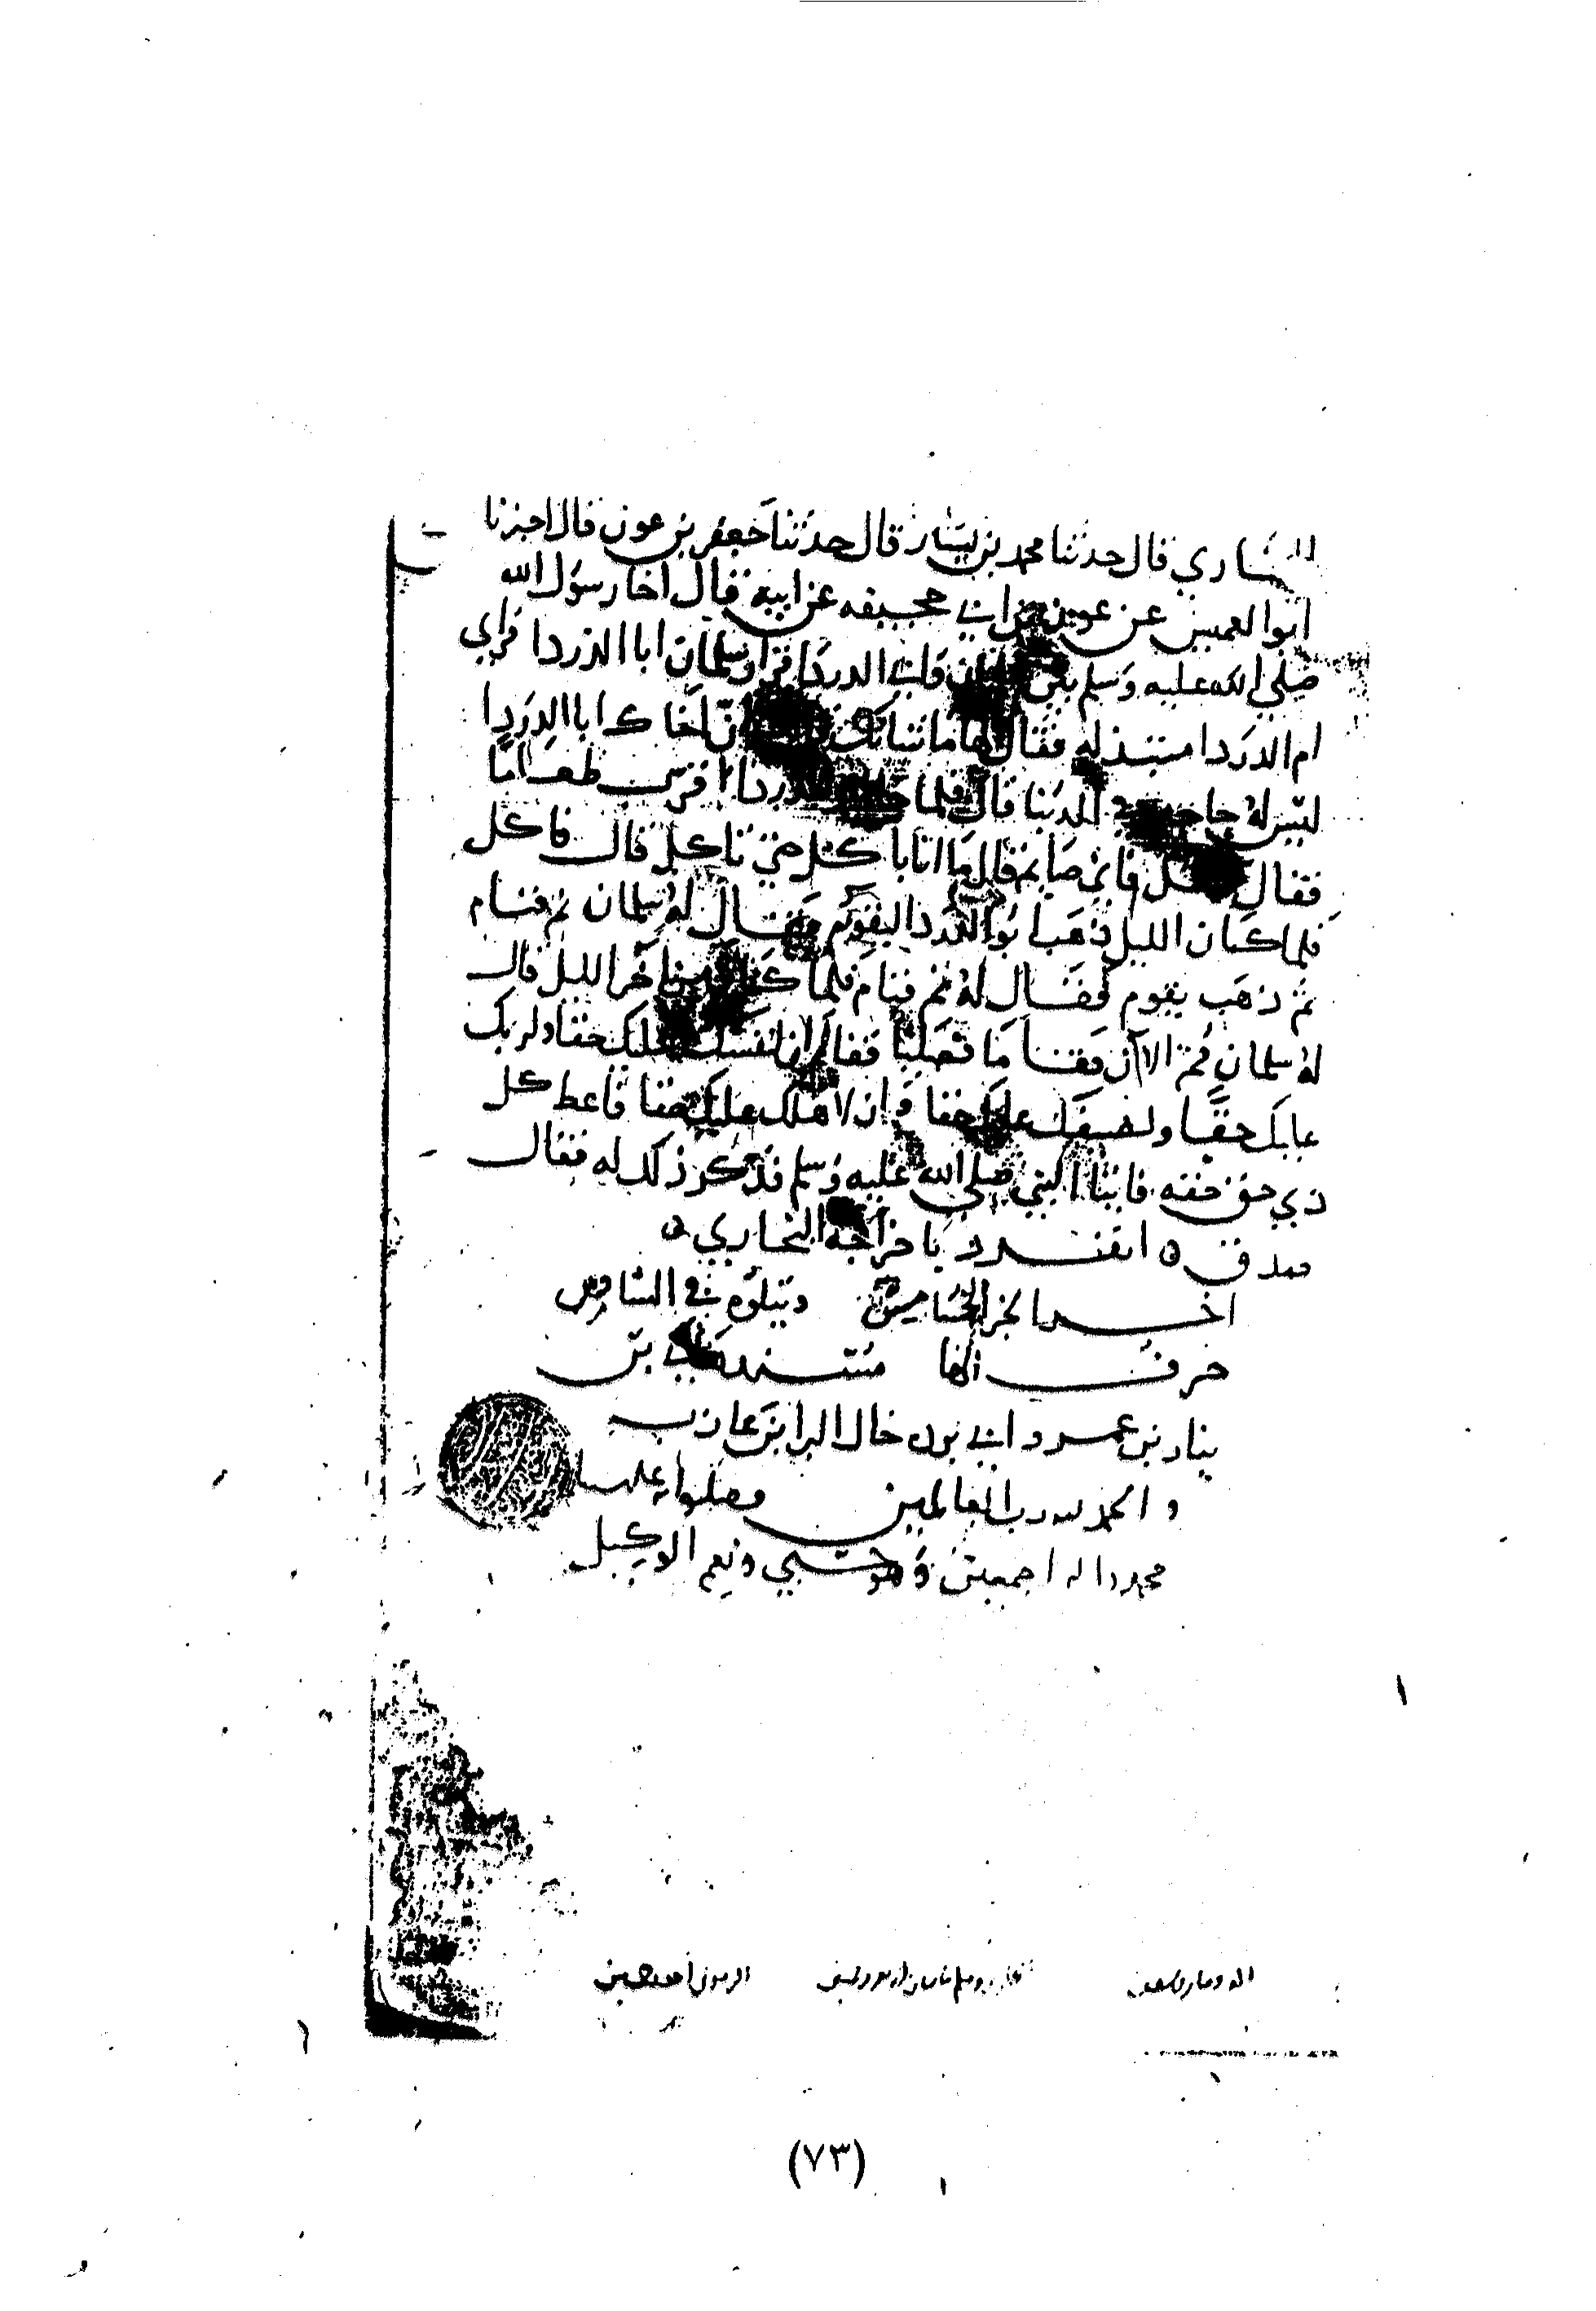 البخاري قال حدثنا محمد بن بشار قال حدثنا جعفر بن عون قال اخبرنا
ابو العميس عن عون بن ابي جحيفه عن ابيه قال اخا رسول الله
صلى الله عليه وسلم بين سلمان وابي الدردا فزار سلمان ابا الدردا فراي
ام الدردا متبذله فقال لها ما شانك قالت ان اخاك ابا الدردا
ليس له حاجه في الدنيا قال فلما جا ابو الدردا قرب طعاما
فقال كل فاني صايم قال ما انا باكل حتى تاكل قال فاكل
فلما كان الليل ذهب ابو الدردا ليقوم فقال له سلمان نم فنام
ثم ذهب يقوم فقال له نم فنام فلما كان من اخر الليل قال
له سلمان قم الآن فقنا فصلينا فقال ان لنفسك عليك حقا ولربك
عليك حقا ولضيفك عليك حقا وان لاهلك عليك حقا فاعط كل
ذي حق حقه فاتينا النبي صلى الله عليه وسلم فذكر ذلك له فقال
صدق ه انفرد باخراجه البخاري ه
اخر الجز الخامس ويتلوه في السادس
حرف الها مسند هاني بن
نيار بن عمرو ابي برده خال البرا بن عازب
والحمد لله رب العالمين وصلواته على
محمد واله اجمعين وهو حسبي ونعم الوكيل
(٧٣)